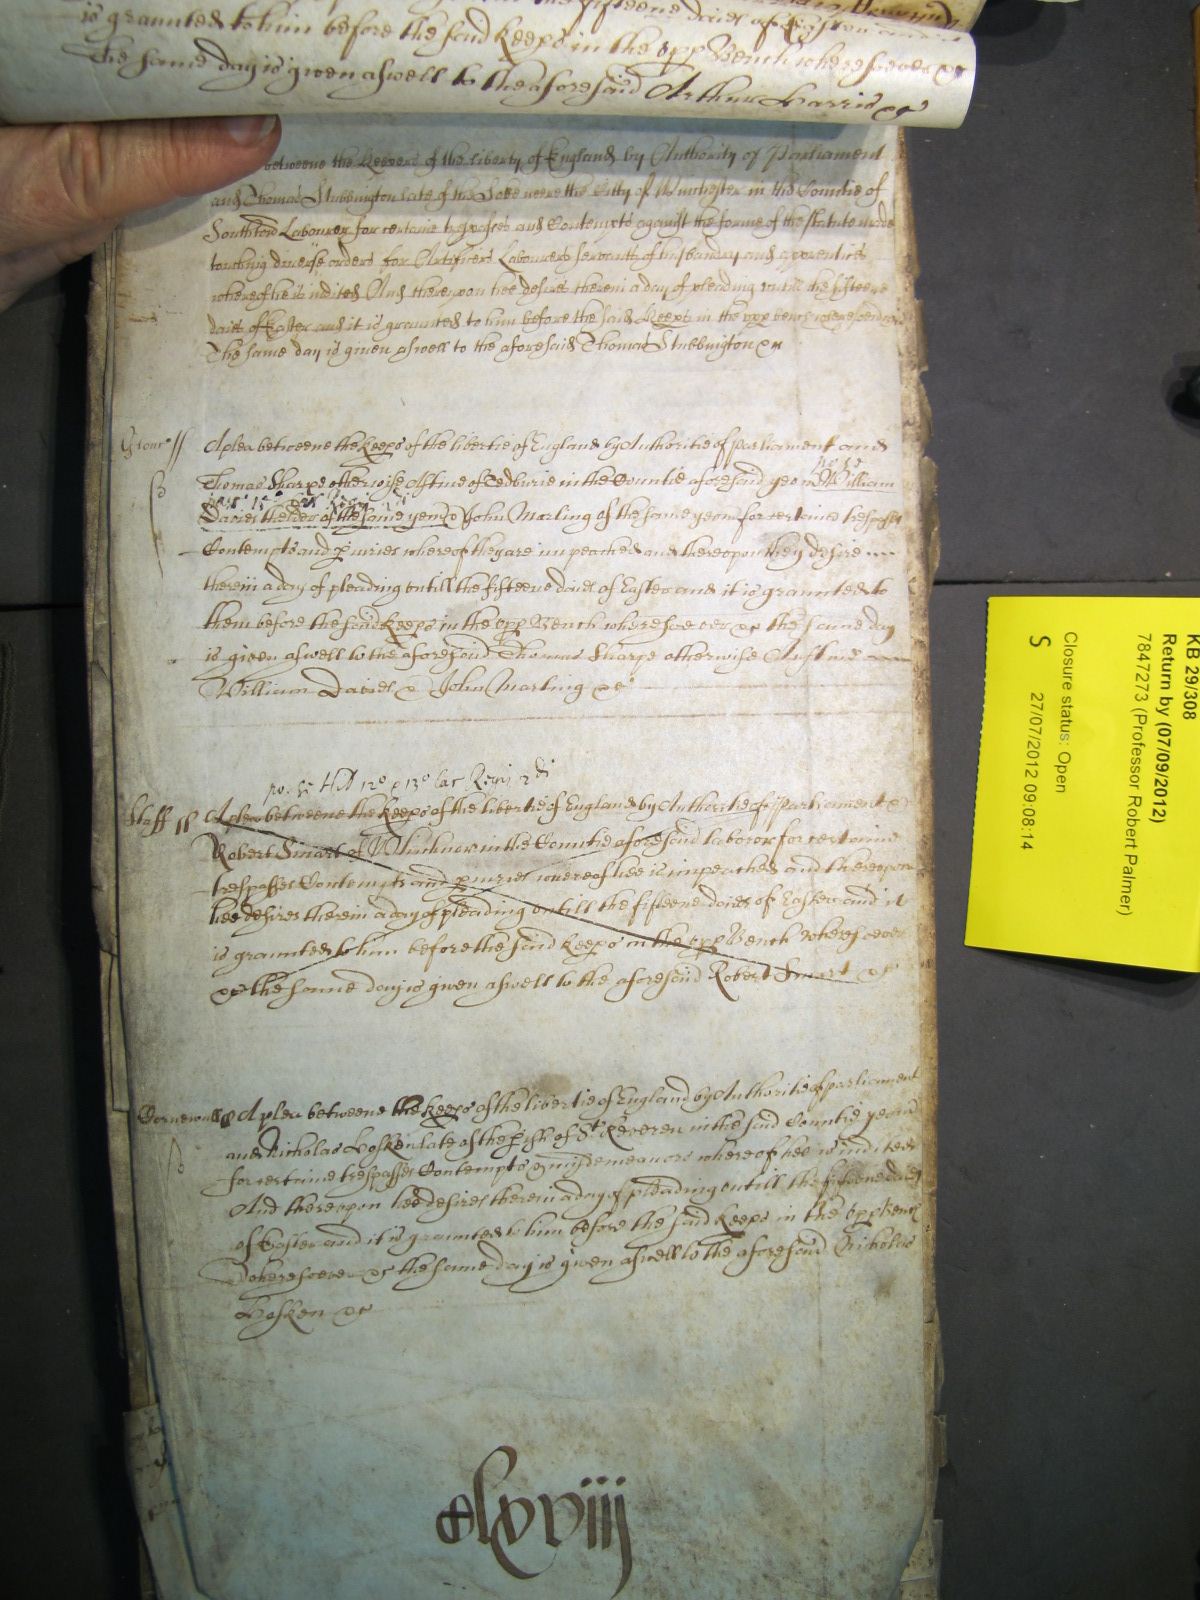 is graunted to him before the said Keeps in the vpp Bench wheresoever &c
The same day is given aswell to the aforesaid Arthur Harris &c
betweene the Keepers of the liberty of England by Authority of Parliament
and Thomas Stubbington late of the Soke neere the Citty of Winchester in the Countie of
Southton Labourer for certaine trespasses and Contempts against the forme of the statute made
touching diverse orders for Artificers Labourers servants of husbandry and apprentices
whereof he is indited And thereupon hee desires therein a day of pleading untill the fifteene
daies of Easter and it is graunted to him before the said Keeps in the vpp bench wheresoever
The same day is given aswell to the aforesaid Thomas Stubbington &c
Glouc //
A plea betweene the Keeps of the libertie of England by Authoritie of parliament and
Thomas Sharpe otherwise Astine of Tedburie in the Countie aforesaid yeom William
Davies thelder of the same yeom & John Marling of the same yeom for certaine trespasses
Contempts and piuries whereof they are impeached and thereopon they desire
therein a day of pleading vntill the fifteene daies of Easter and it is graunted to
them before the said Keeps in the vpp Bench wheresoever &c the same day
is given aswell to the aforesaid Thomas Sharpe otherwise Austine
William Davies & John Marling &c
po. se Hill 12o & 13o Car Regis 2di
Staff //
A plea betweene the Keeps of the libertie of England by Authoritie of Parliament &
Robert Smart of in the Countie aforesaid laborer for certaine
trespasses Contempts and piuries whereof hee is impeached and thereopon
hee desires therein a day of pleading vntill the fifteene daies of Easter and it
is graunted to him before the said Keeps in the vpp Bench wheresoever
&c the same day is given aswell to the aforesaid Robert Smart &c
Cornewall //
A plea betweene the Keeps of the libertie of England by Authoritie of parliament
and Nicholas Hosken late of the pish of St Keveren in the said Countie yeom
for certaine trespasses Contempts & misdemeanors whereof hee is indited
And thereopon hee desires therein a day of pleading vntill the fifteene daies
of Easter and it is graunted to him before the said Keeps in the vpp Bench
wheresoever &c the same day is given aswell to the aforesaid Nicholas
Hosken &c
clxviij
KB 29/308
Return by (07/09/2012)
7847273 (Professor Robert Palmer)
Closure status: Open
S 27/07/2012 09:08:14